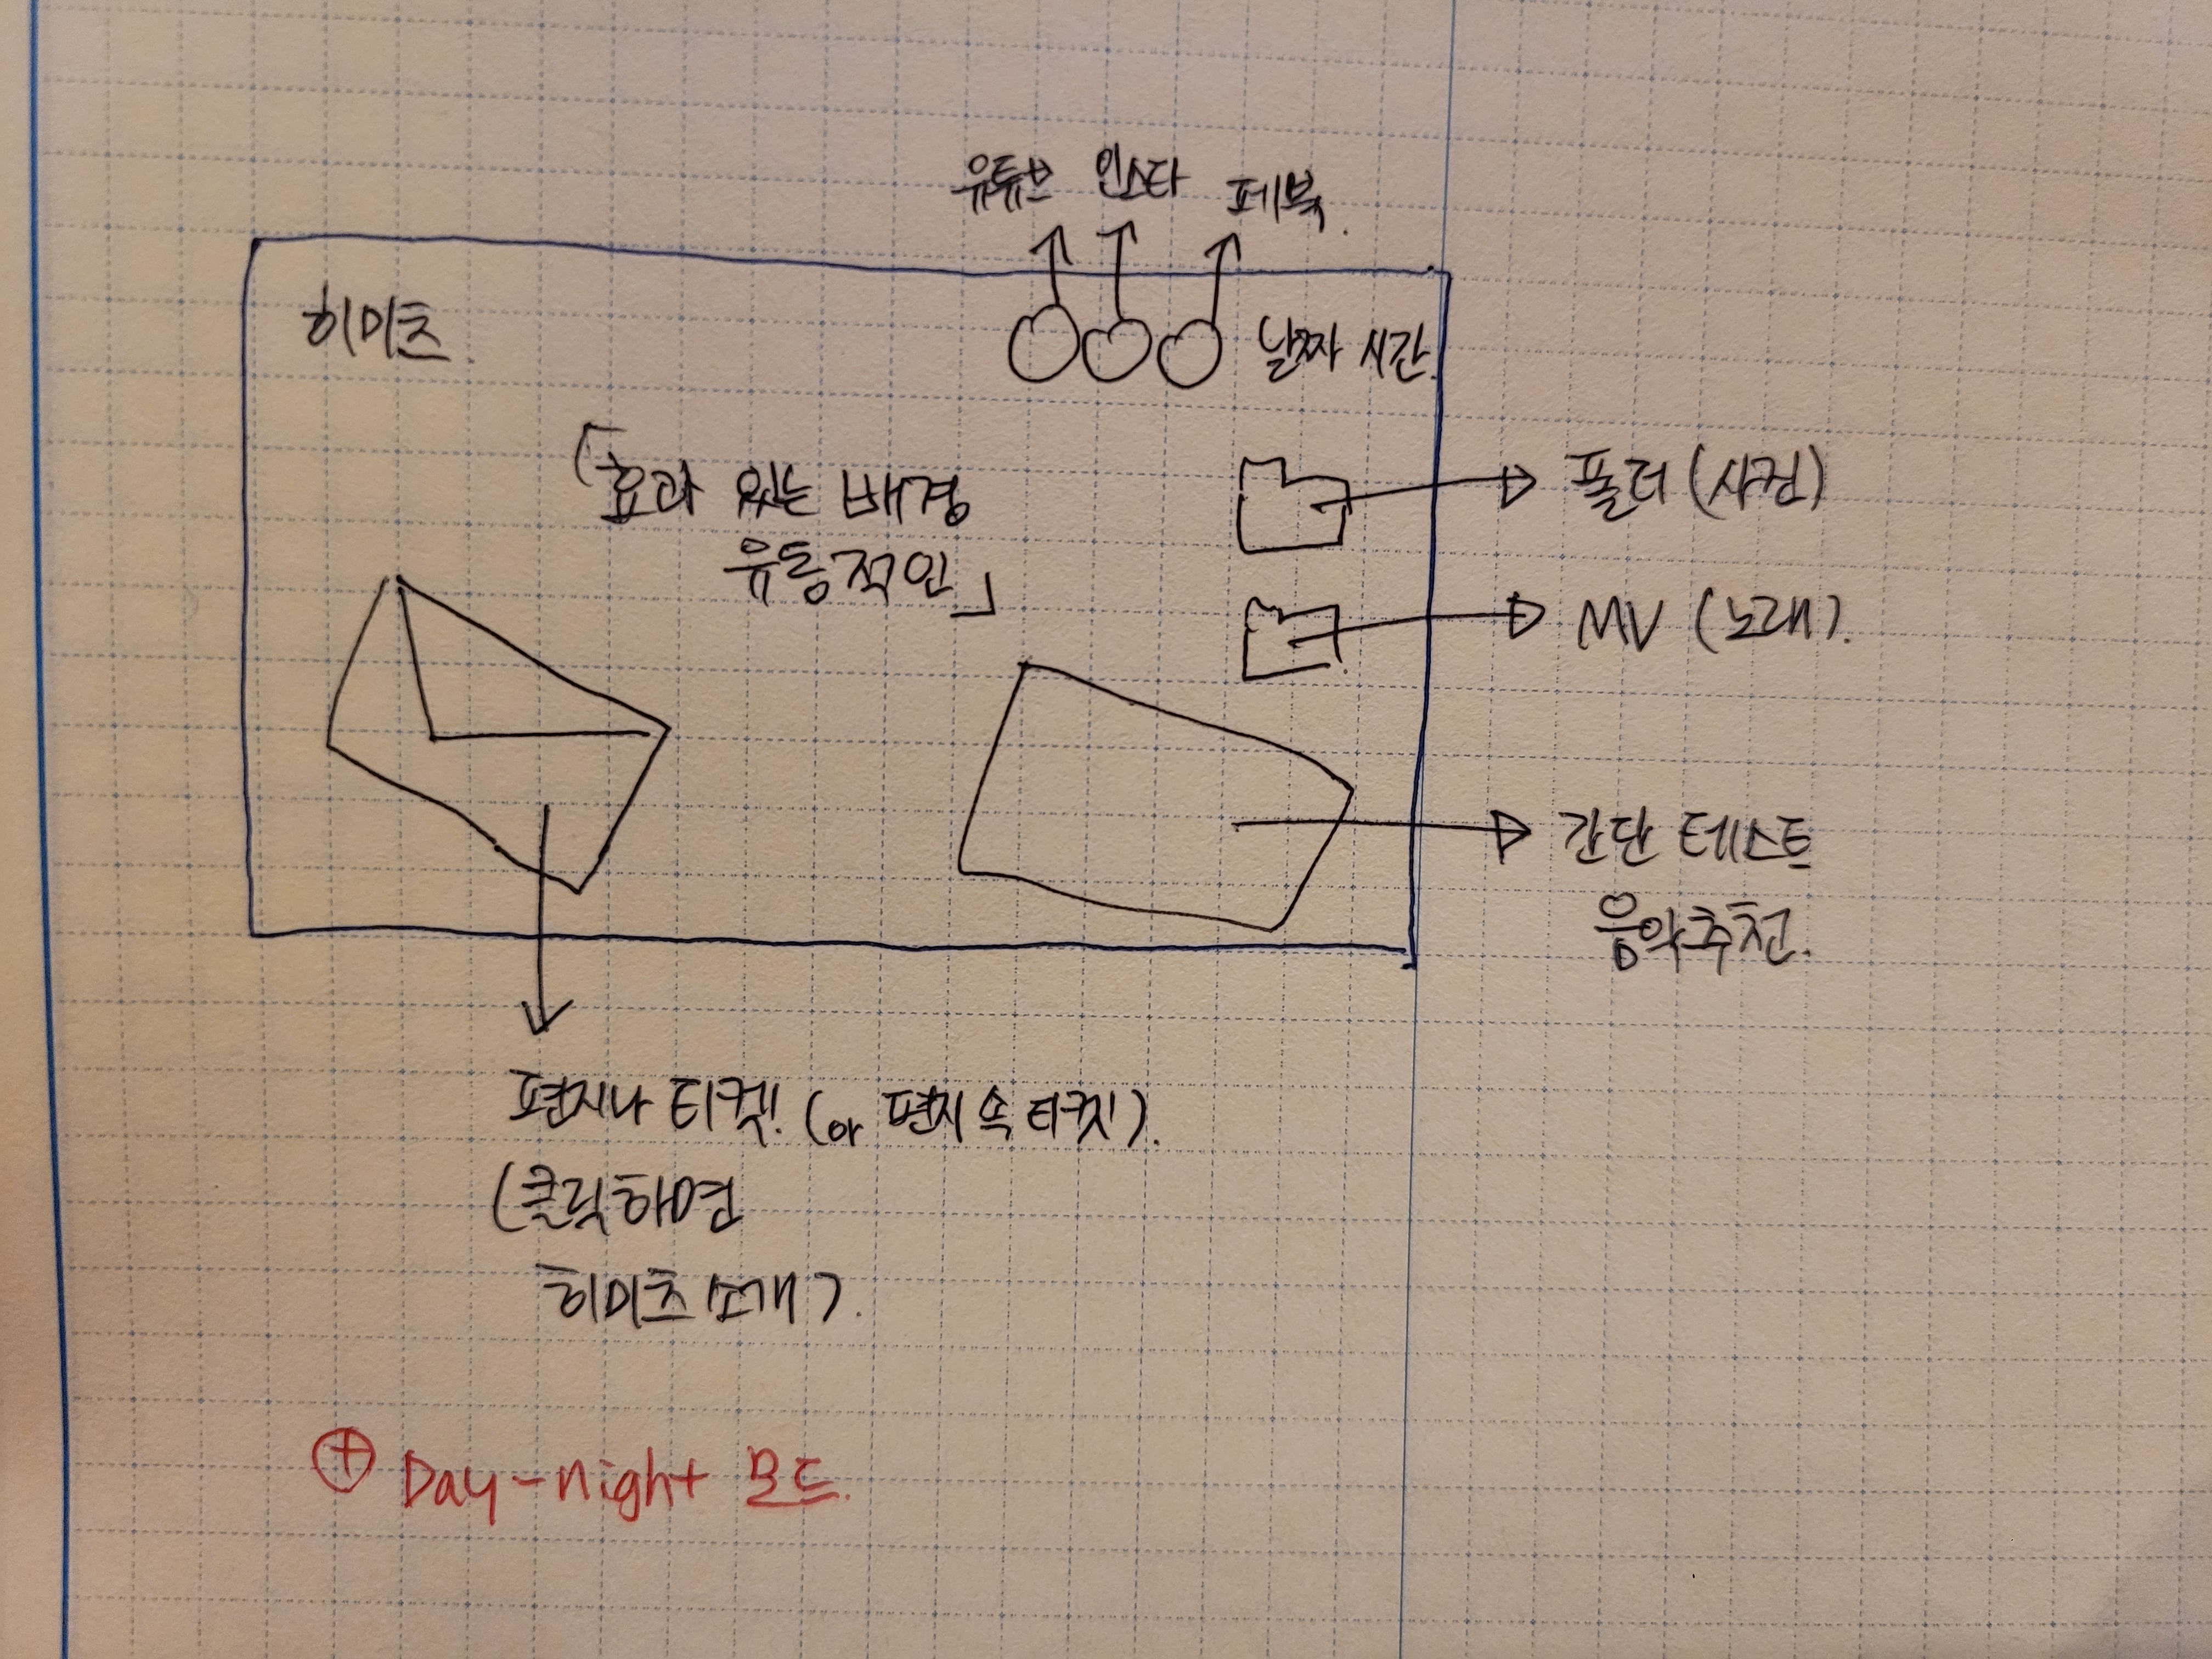 유튜브 인스타 페북.
히미츠.
날짜 시간.
「효과 있는 배경
유동적인」
폴더 (사진)
MV (노래).
간단 테스트
음악추천.
편지나 티켓! (or 편지 속 티켓!).
(클릭하면
히미츠 소개).
⊕ Day-night 모드.